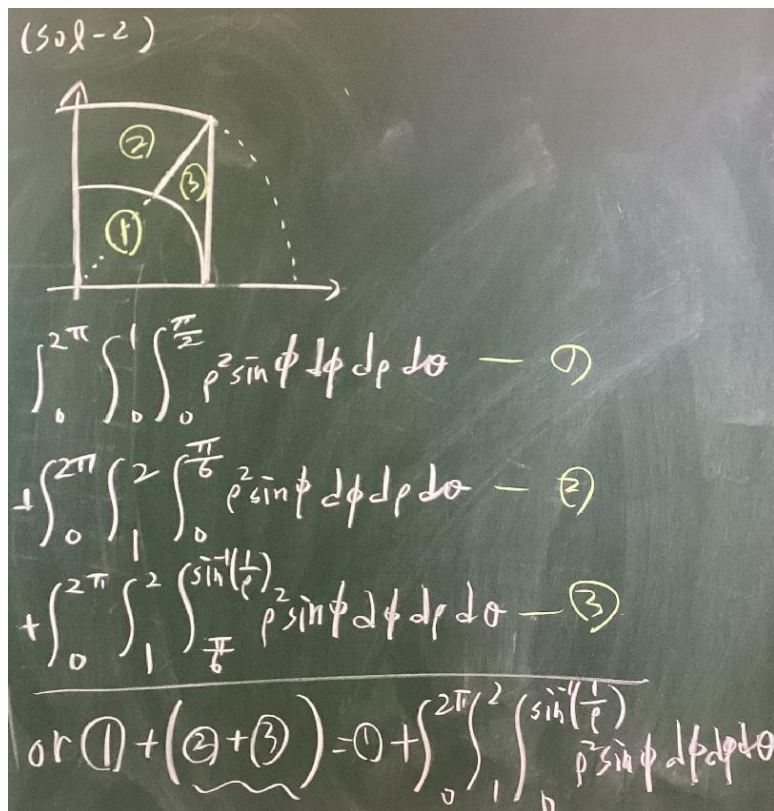 (sol-2)
②
③
①
∫₀^{2π} ∫₀^{1} ∫₀^{π/2} ρ² sin φ dφ dρ dθ — ①
+ ∫₀^{2π} ∫₁^{2} ∫₀^{π/6} ρ² sin φ dφ dρ dθ — ②
+ ∫₀^{2π} ∫₁^{2} ∫_{π/6}^{sin⁻¹(1/ρ)} ρ² sin φ dφ dρ dθ — ③
or ① + (② + ③) = ① + ∫₀^{2π} ∫₁^{2} ∫₀^{sin⁻¹(1/ρ)} ρ² sin φ dφ dρ dθ